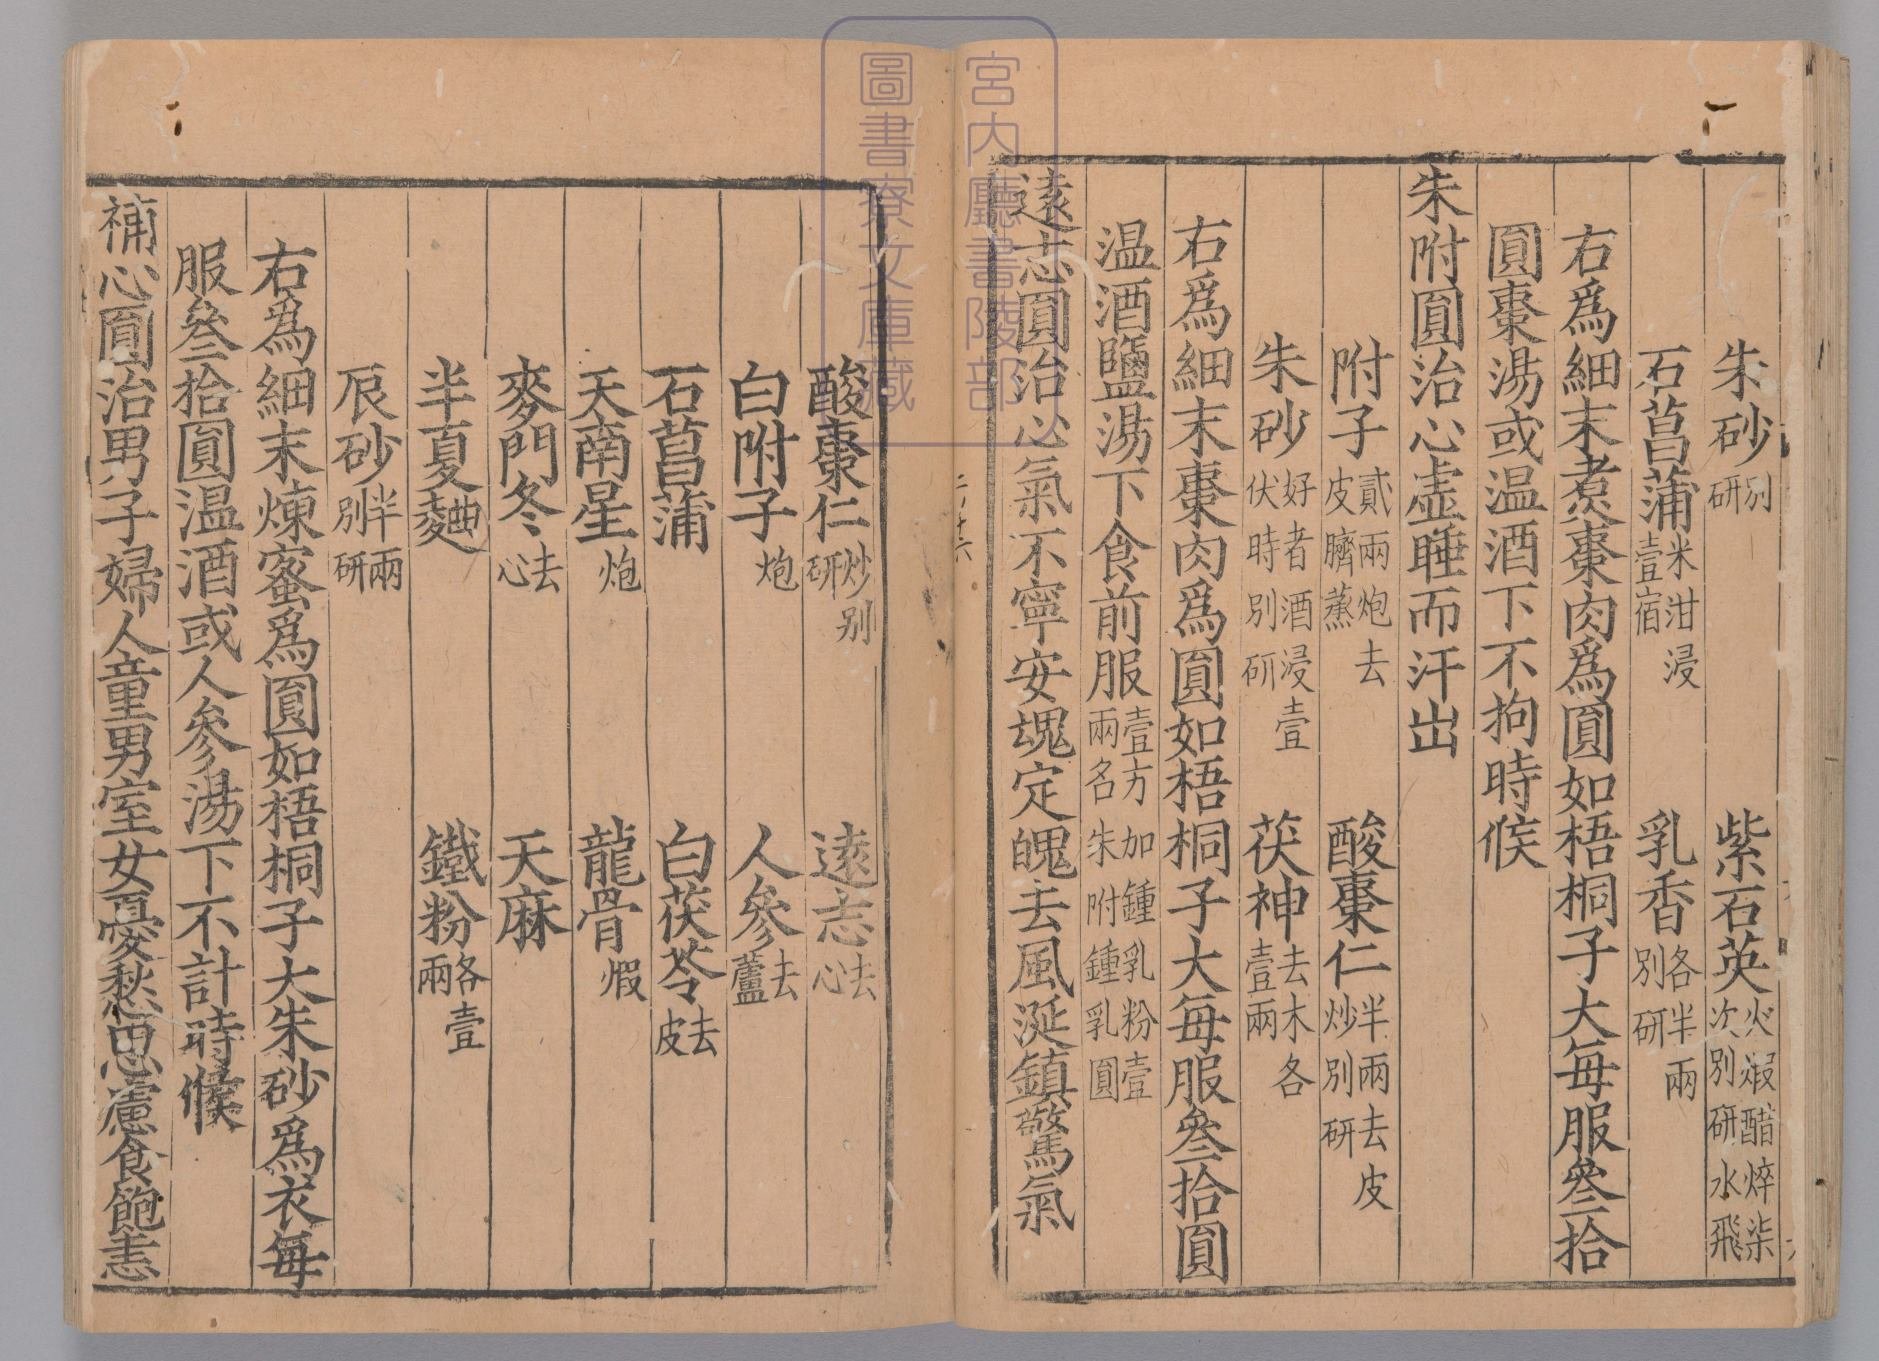 朱砂別研　紫石英火煆醋焠柒次別研水飛
石菖蒲米泔浸壹宿　乳香各半兩別研
右爲細末煑棗肉爲圓如梧桐子大每服叄拾
圓棗湯或温酒下不拘時候
朱附圓治心虛睡而汗出
附子貳兩炮去皮臍蒸　酸棗仁半兩去皮炒別研
朱砂好者酒浸壹伏時別研　茯神去木各壹兩
右爲細末棗肉爲圓如梧桐子大每服叄拾圓
温酒鹽湯下食前服壹方加鍾乳粉壹兩名朱附鍾乳圓
遠志圓治心氣不寧安魂定魄去風涎鎮驚氣
酸棗仁炒別研　遠志去心
白附子炮　人參去蘆
石菖蒲　白茯苓去皮
天南星炮　龍骨煆
麥門冬去心　天麻
半夏麯　鐵粉各壹兩
辰砂半兩別研
右爲細末煉蜜爲圓如梧桐子大朱砂爲衣每
服叄拾圓温酒或人參湯下不計時候
補心圓治男子婦人童男室女憂愁思慮食飽恚
宮内廳書陵部
圖書寮文庫蔵